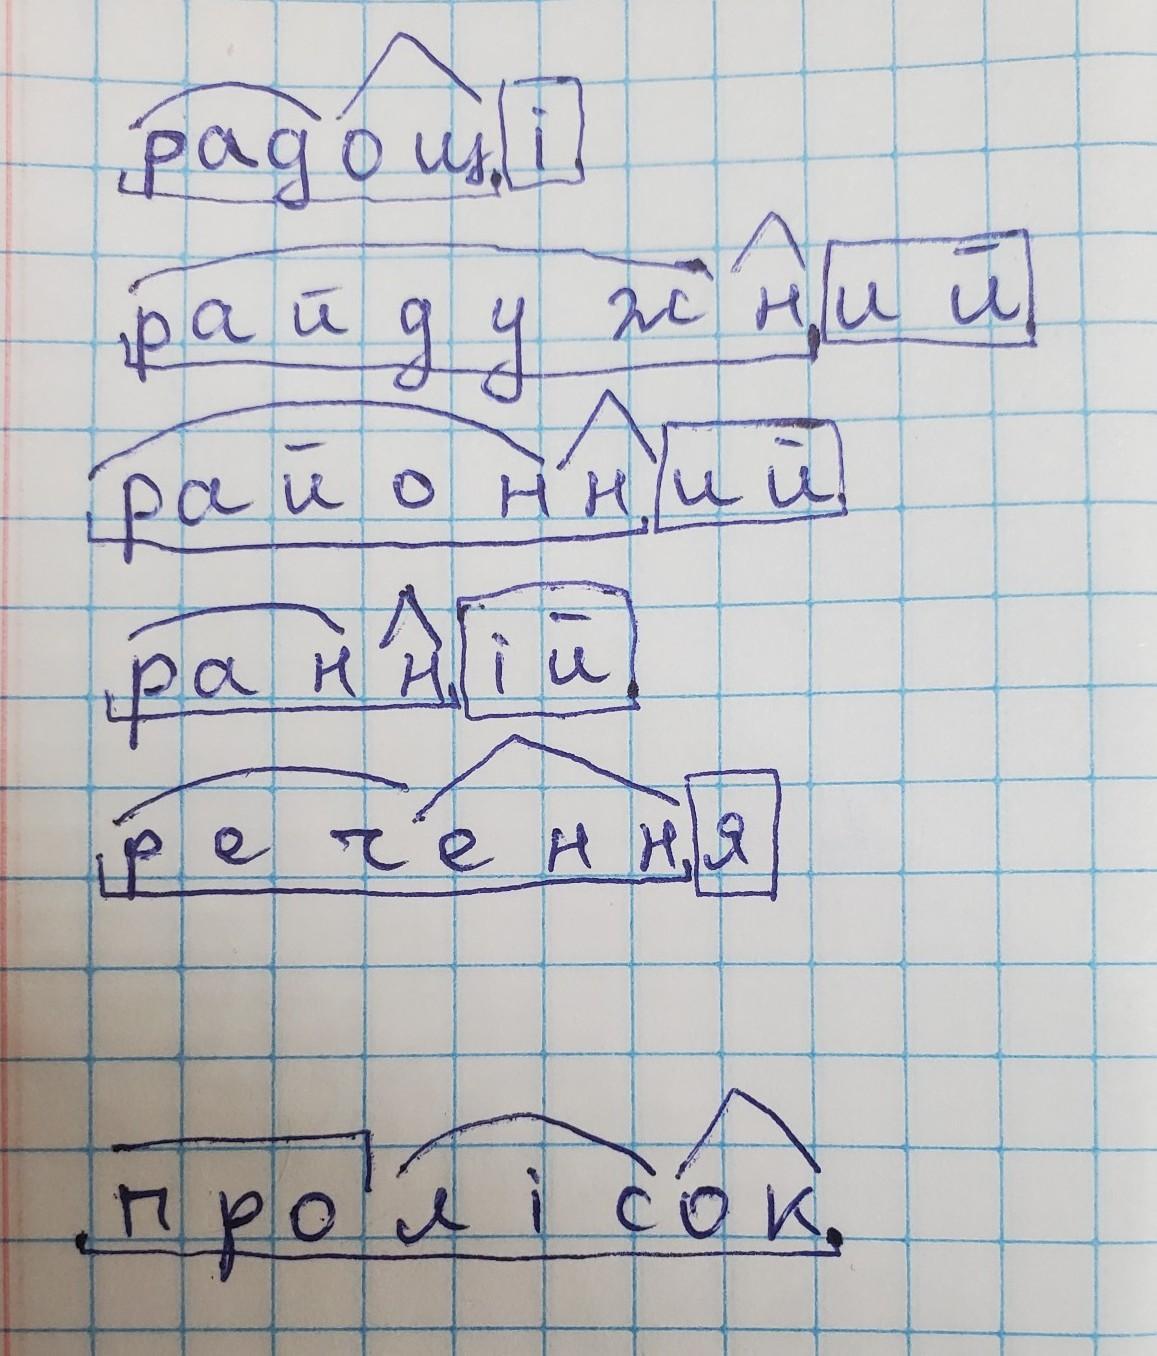 радощі
райдужний
районний
ранній
речення
пролісок